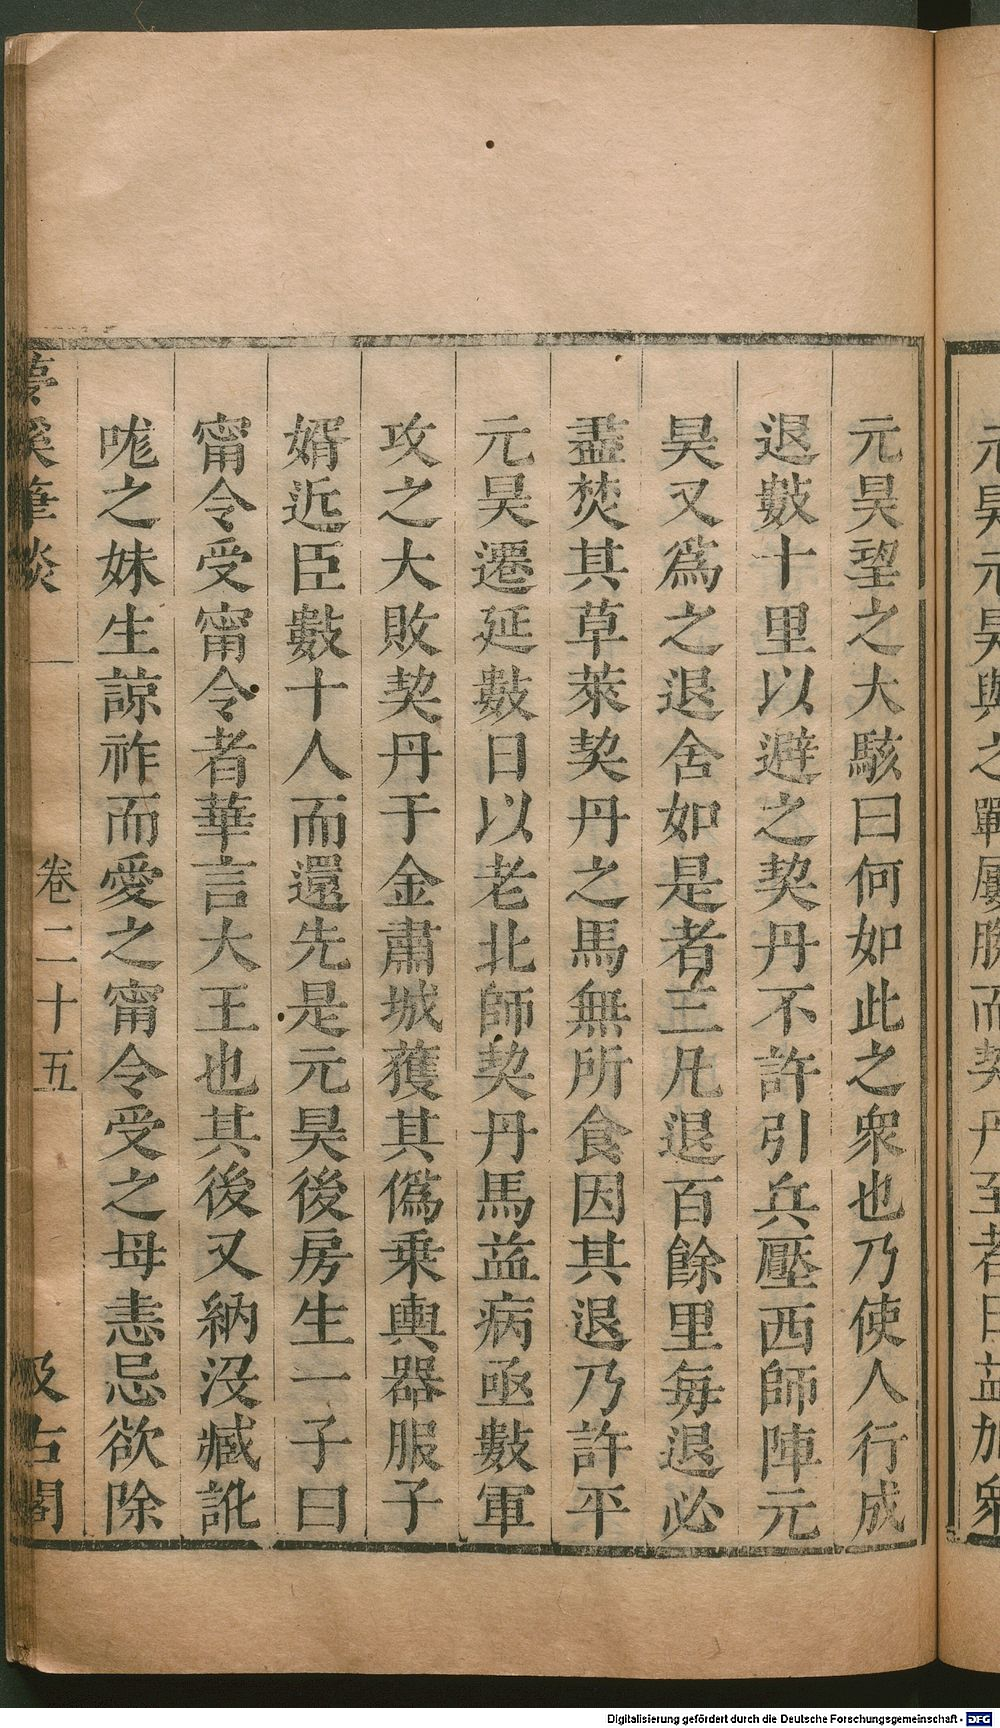 元昊望之大駭曰何如此之衆也乃使人行成
退數十里以避之契丹不許引兵壓西師陣元
昊又爲之退舍如是者三凡退百餘里每退必
盡焚其草萊契丹之馬無所食因其退乃許平
元昊遷延數日以老北師契丹馬益病亟數軍
攻之大敗契丹于金肅城獲其僞乗輿器服子
婿近臣數十人而還先是元昊後房生一子曰
甯令受甯令者華言大王也其後又納沒臧訛
哤之妹生諒祚而愛之甯令受之母恚忌欲除
夢溪筆談
卷二十五
汲古閣
元昊元昊與之戰屢勝而契丹至者日益加衆
Digitalisierung gefördert durch die Deutsche Forschungsgemeinschaft - DFG